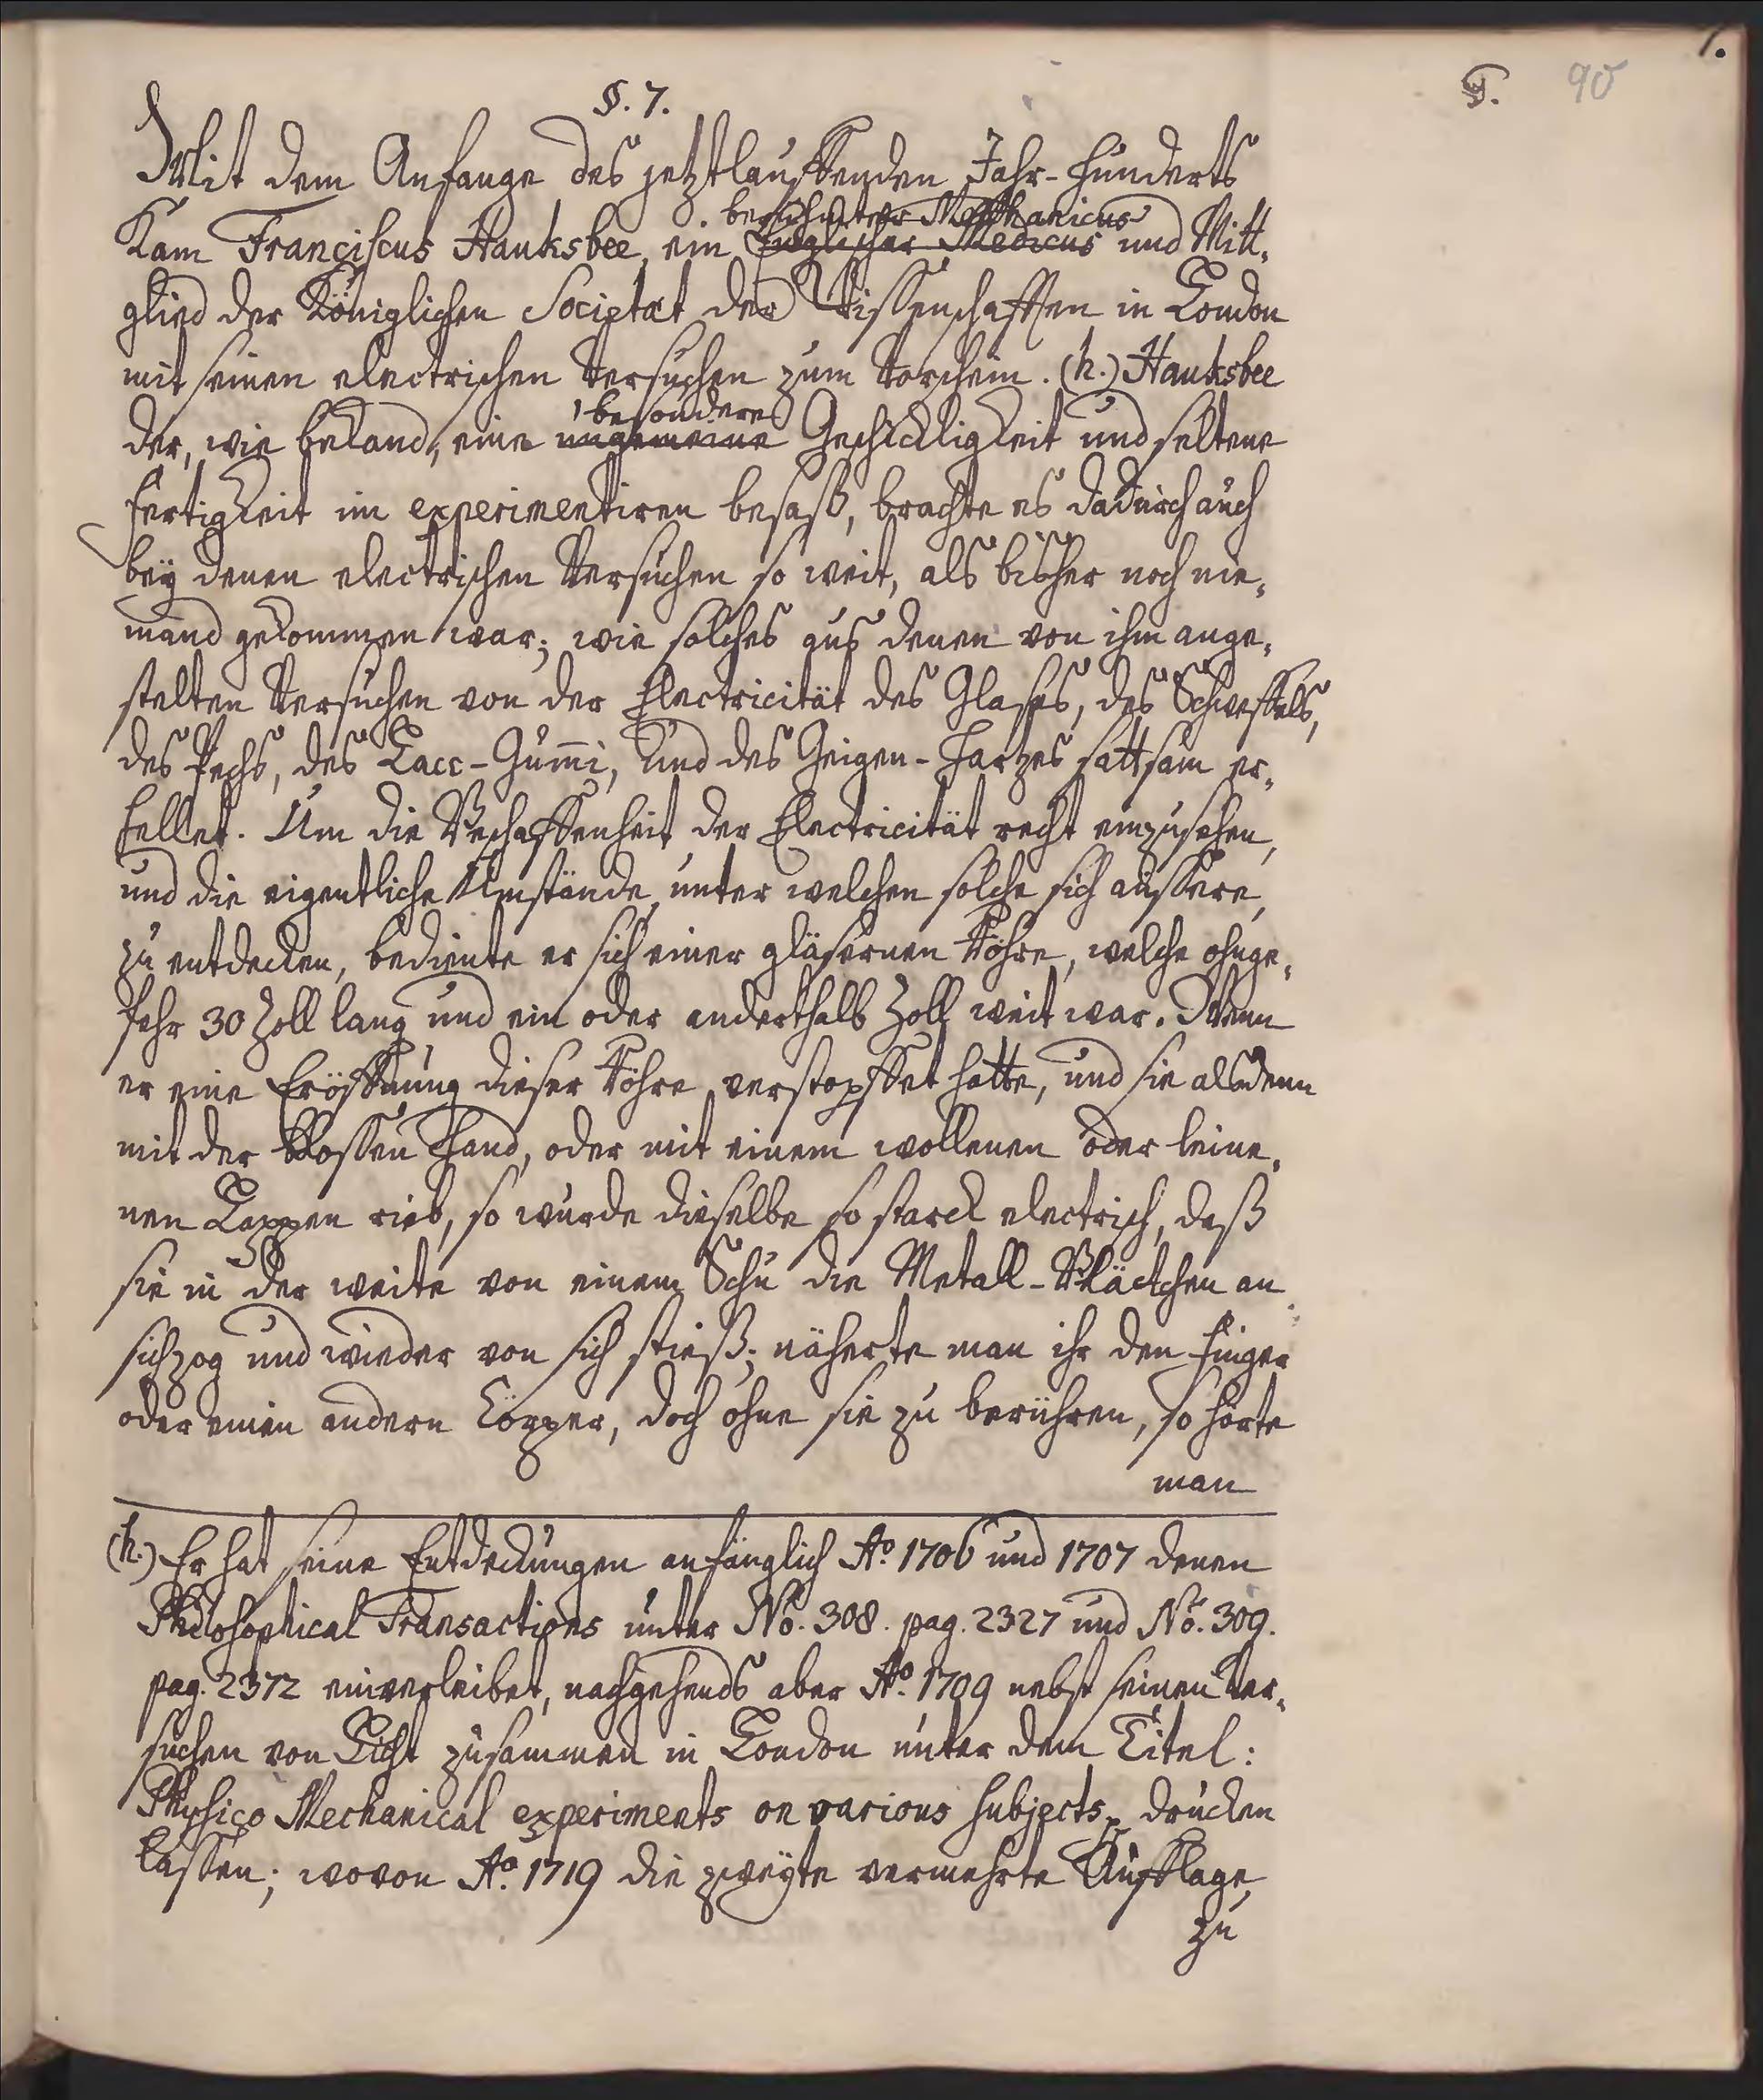 7.
F. 90
§. 7.
Mit dem Anfange des jetztlauffenden Jahr-hunderts
berühmter Mechanicus
kam Franciscus Hauksbee, ein Englischer Medicus und Mitt-
glied der Königlichen Societat der Wissenschafften in London
mit seinen electrischen Versuchen zum Vorschein. (h.) Hauksbee
besondere
der, wie bekand, eine ungemeine Geschickligkeit und seltene
Fertigkeit im experimentiren besaß, brachte es dadurch auch
bey denen electrischen Versuchen so weit, als bisher noch nie-
mand gekommen war; wie solches aus denen von ihm ange-
stelten Versuchen von der Electricität des Glases, des Schweffels,
des Pechs, des Lacc-Gummi, und des Geigen-Hartzes sattsam er-
hellet. Um die Beschaffenheit der Electricität recht einzusehen,
und die eigentliche Umstände, unter welchen solche sich äussere,
zu entdecken, bediente er sich einer gläsernen Röhre, welche ohnge-
fehr 30 Zoll lang und ein oder anderthalb Zoll weit war. Wenn
er eine Eröffnung dieser Röhre verstopffet hatte, und sie alsdenn
mit der blossen Hand, oder mit einem wollenen oder leine-
nen Lappen rieb, so wurde dieselbe so starck electrisch, daß
sie in der weite von einem Schu die Metall-Blättchen an
sich zog und wieder von sich stieß; näherte man ihr den Finger
oder einen andern Cörper, doch ohne sie zu berühren, so hörte
man
(h.) Er hat seine Entdeckungen anfänglich Ao. 1706 und 1707 denen
Philosophical Transactions unter No. 308. pag. 2327 und No. 309.
pag. 2372 einverleibet, nachgehends aber Ao. 1709 nebst seinen Ver-
suchen von Licht zusammen in London unter dem Titel:
Physico Mechanical experiments on various subjects, drucken
lassen; wovon Ao. 1719 die zweyte vermehrte Aufflage
zu